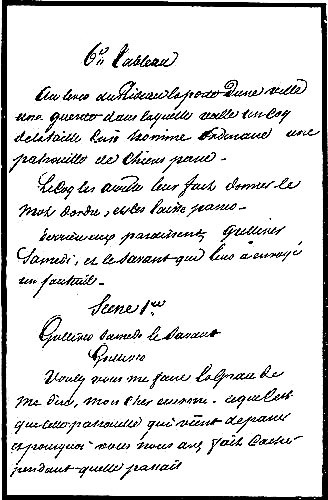 6e Tableau
Au lever du Rideau la porte d'une ville
une guerite dans laquelle veille un Coq
de la taille d'un homme ordinaire une
patrouille de chiens passe.
Le Coq les arrête leur fait donner le
mot d'ordre, et les laisse passer.
derrière eux paraissent, Gulliver
Samedi, et le Savant qui
un fauteuil.
Scene 1ere
Gulliver Samedi le Savant
Gulliver
Voulez vous me faire la grace de
me dire, mon cher
que cette patrouille qui vient de passer
et pourquoi vous nous avez fait cacher
pendant quelle passait